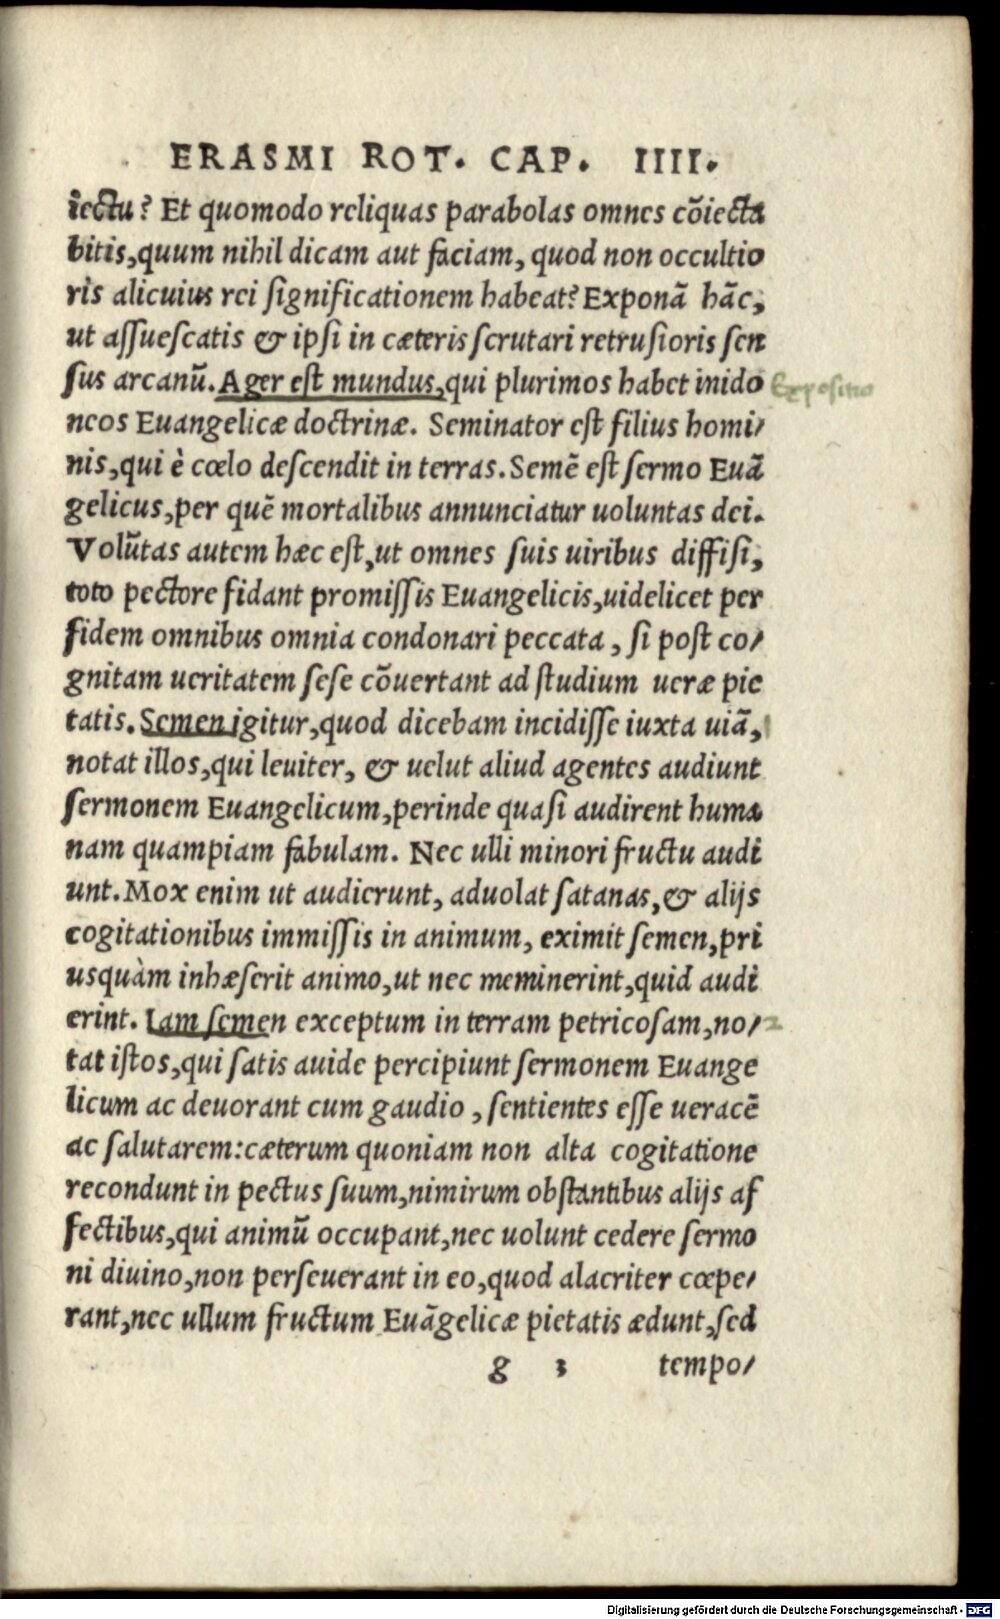 ERASMI ROT. CAP. IIII.
iectu? Et quomodo reliquas parabolas omnes cõiecta
bitis, quum nihil dicam aut faciam, quod non occultio
ris alicuius rei significationem habeat? Exponã hãc,
ut assuescatis & ipsi in cæteris scrutari retrusioris sen
sus arcanũ. Ager est mundus, qui plurimos habet inido
Expositio
neos Euangelicæ doctrinæ. Seminator est filius homi/
nis, qui è cœlo descendit in terras. Semẽ est sermo Euã
gelicus, per quẽ mortalibus annunciatur uoluntas dei.
Volũtas autem hæc est, ut omnes suis uiribus diffisi,
toto pectore fidant promissis Euangelicis, uidelicet per
fidem omnibus omnia condonari peccata, si post co/
gnitam ueritatem sese cõuertant ad studium ueræ pie
tatis. Semen igitur, quod dicebam incidisse iuxta uiã,
notat illos, qui leuiter, & uelut aliud agentes audiunt
sermonem Euangelicum, perinde quasi audirent huma
nam quampiam fabulam. Nec ulli minori fructu audi
unt. Mox enim ut audierunt, aduolat satanas, & alijs
cogitationibus immissis in animum, eximit semen, pri
usquàm inhæserit animo, ut nec meminerint, quid audi
erint. Iam semen exceptum in terram petricosam, no/
2
tat istos, qui satis auide percipiunt sermonem Euange
licum ac deuorant cum gaudio, sentientes esse ueracẽ
ac salutarem: cæterum quoniam non alta cogitatione
recondunt in pectus suum, nimirum obstantibus alijs af
fectibus, qui animũ occupant, nec uolunt cedere sermo
ni diuino, non perseuerant in eo, quod alacriter cœpe/
rant, nec ullum fructum Euãgelicæ pietatis ædunt, sed
g 3 tempo/
Digitalisierung gefördert durch die Deutsche Forschungsgemeinschaft - DFG